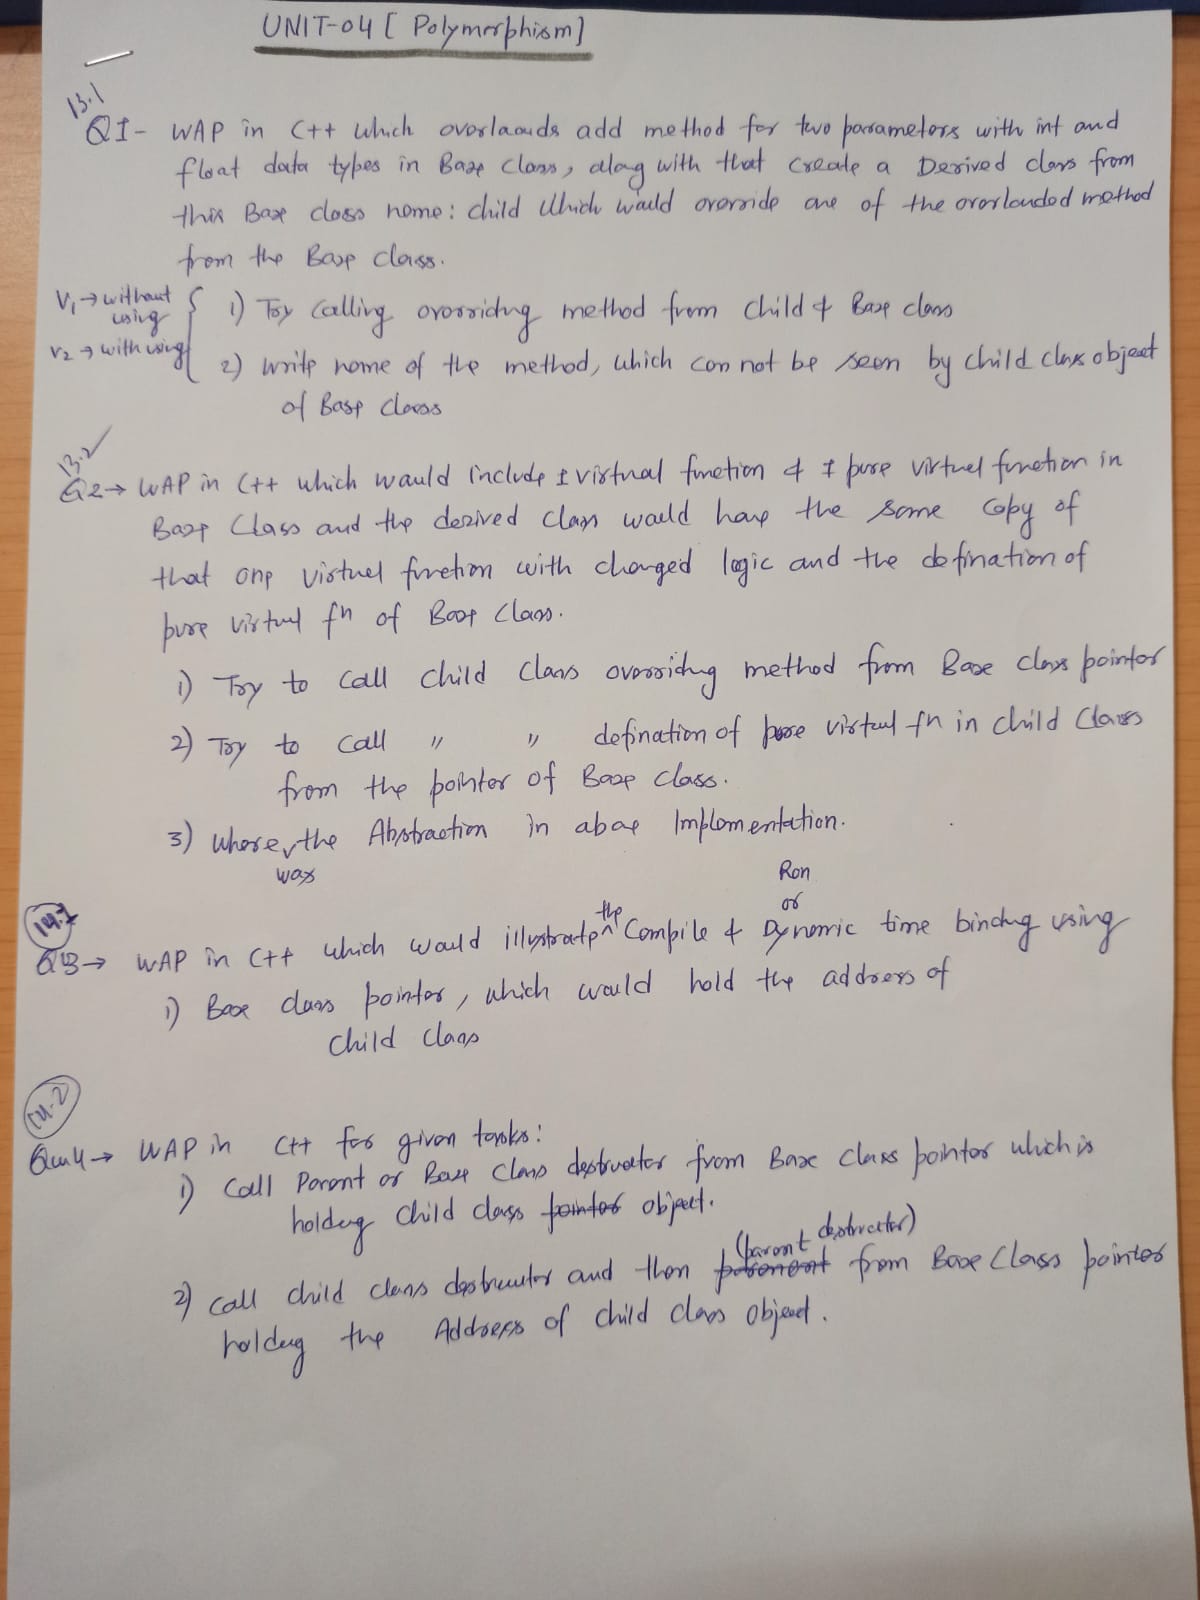 UNIT-04 [ Polymorphism ]
13.1
Q1- WAP in C++ which overlaoads add method for two parameters with int and
float data types in Base class, along with that create a Derived class from
this Base class name: child which would override one of the overloaded method
from the Base class.
V1 → without using
V2 → with using
1) Try calling overriding method from child & Base class
2) write name of the method, which can not be seen by child class object
of Base class
13.2
Q2 → WAP in C++ which would include 1 virtual function & 1 pure virtual function in
Base class and the derived class would have the same copy of
that one virtual function with changed logic and the defination of
pure virtual fn of Base class.
1) Try to call child class overriding method from Base class pointer
2) Try to call " " defination of pure virtual fn in child class
from the pointer of Base class.
3) where was the Abstraction in above Implementation.
14.1
Q3 → WAP in C++ which would illustrate the Compile & Run or Dynamic time binding using
1) Base class pointer, which would hold the address of
child class
14.2
Que 4 → WAP in C++ for given tasks:
1) Call Parent or Base class destructor from Base class pointer which is
holding child class pointer object.
2) call child class destructor and then (parent destructor) from Base class pointer
holding the Address of child class object.